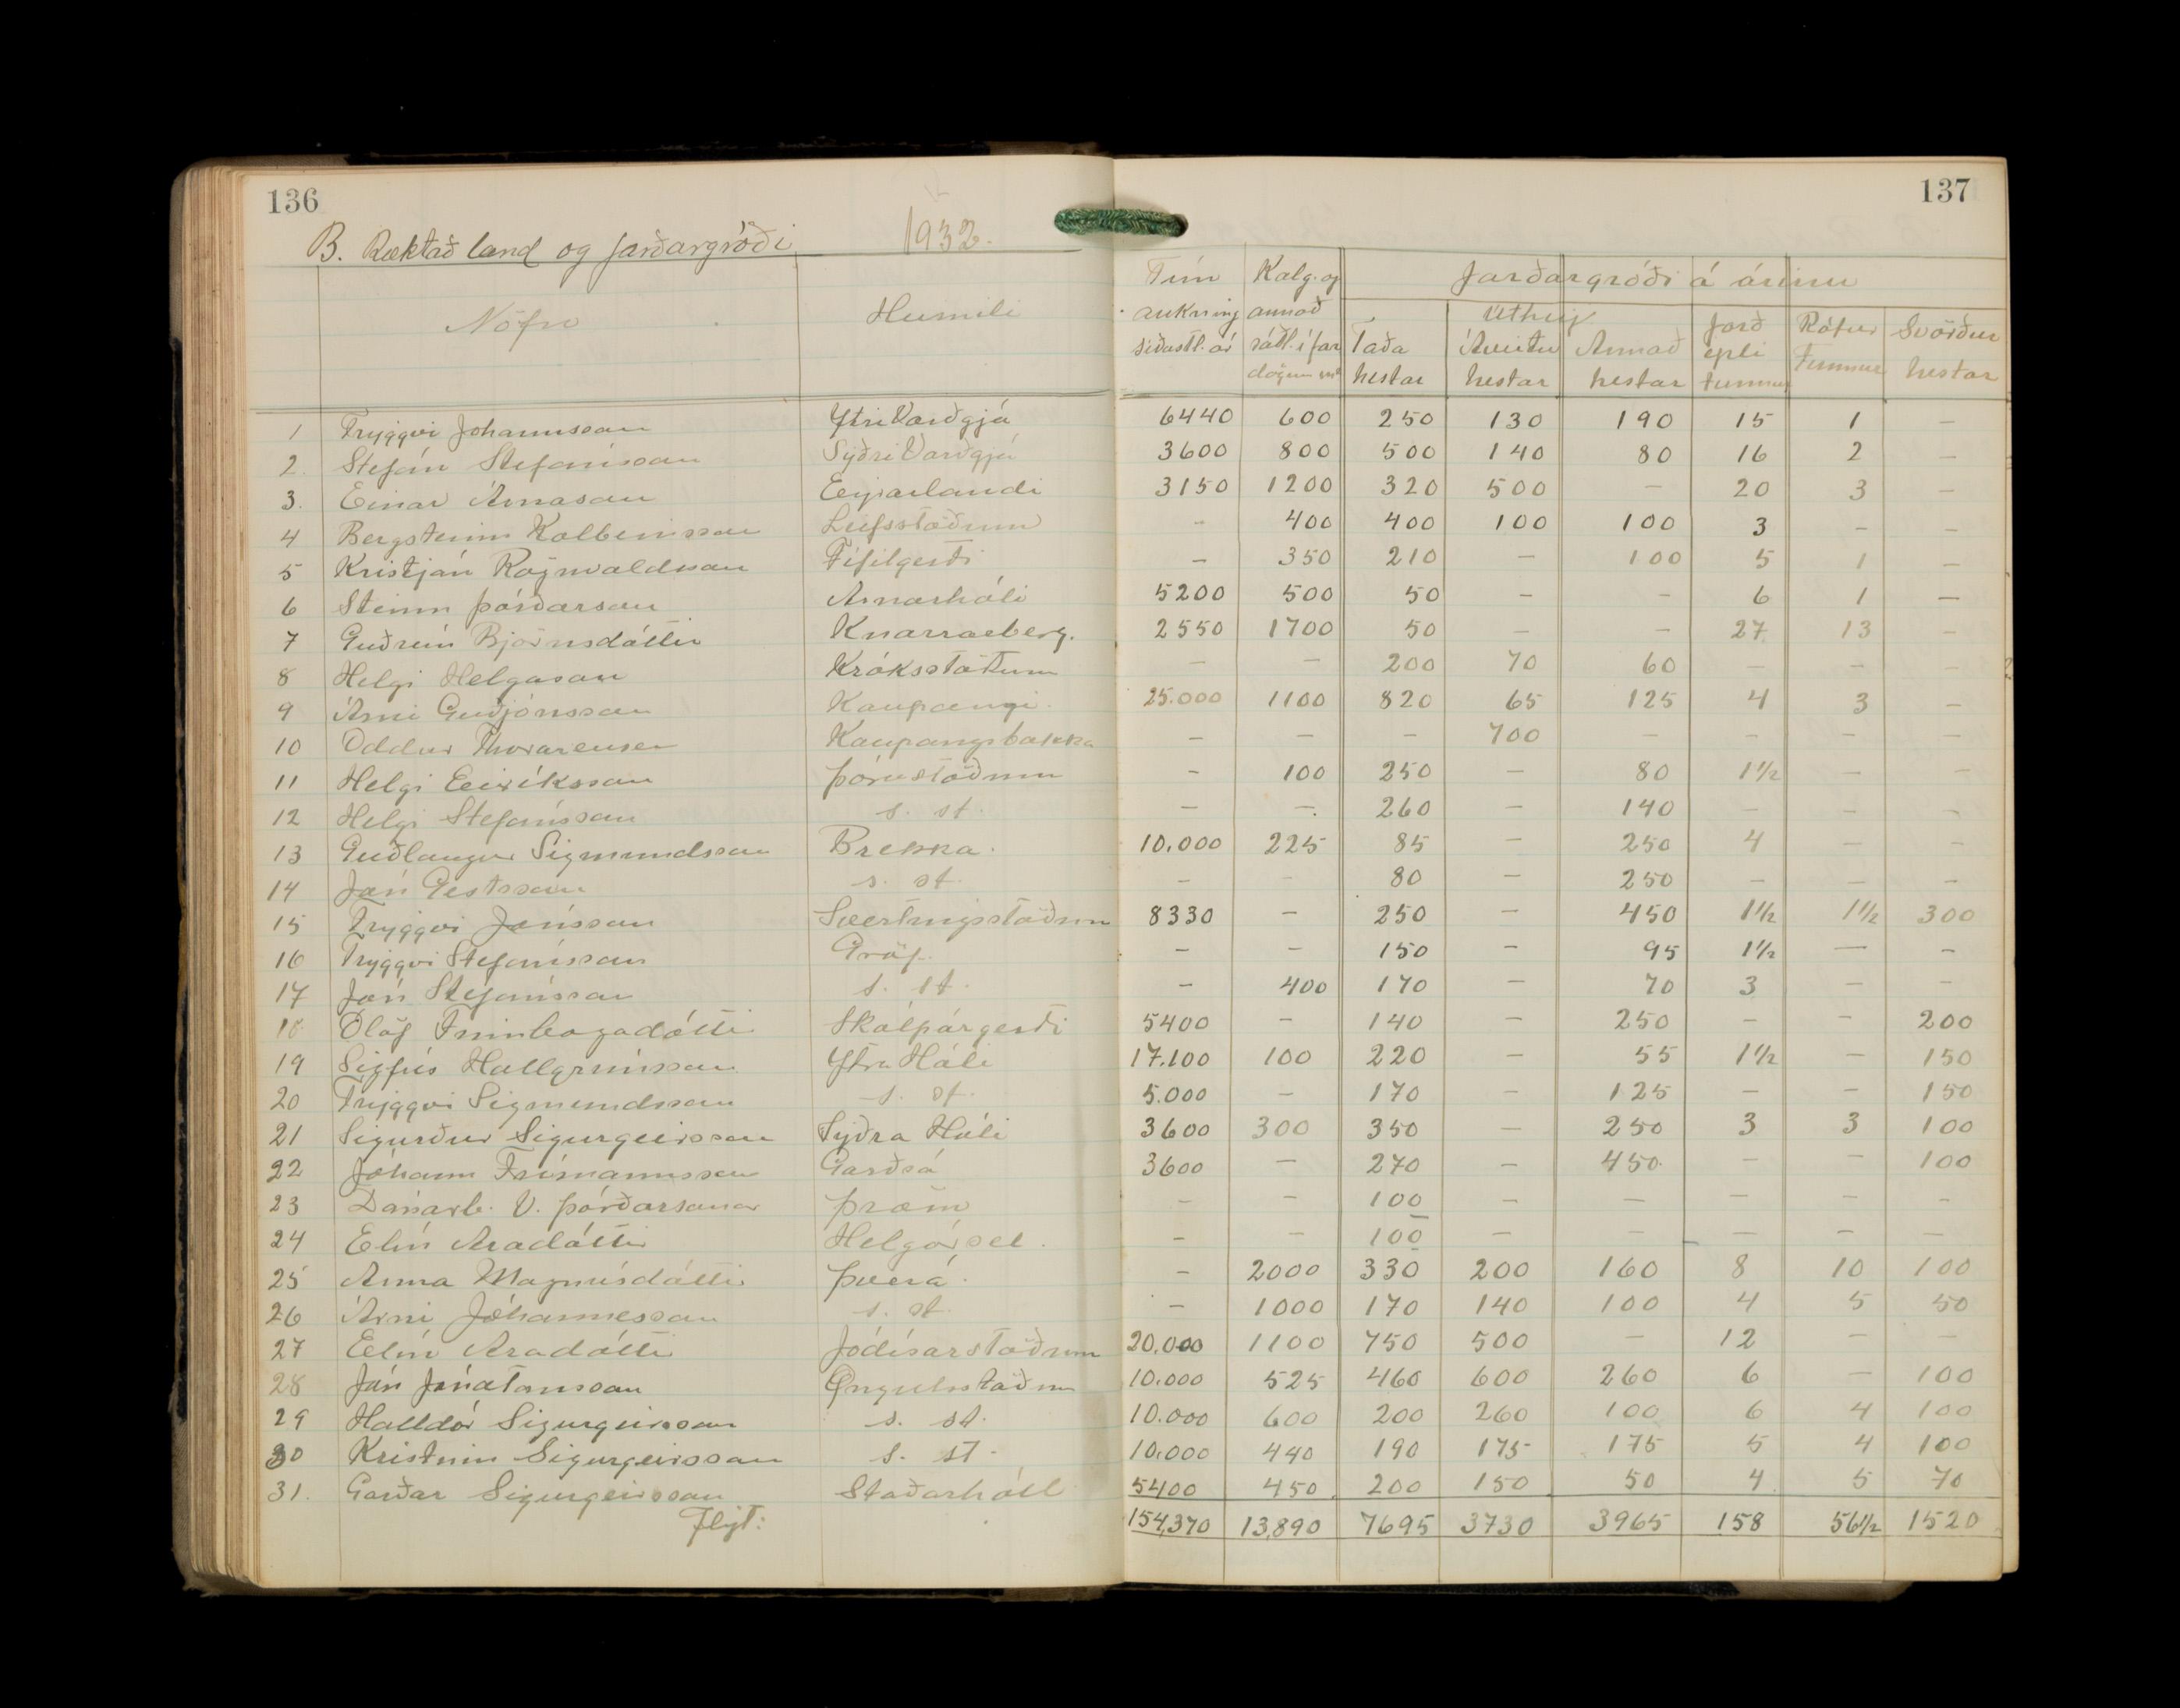 136
137
B. Ræktað land og jarðargróði 1932.
Nöfn Heimili Tún aukning síðastl. ár Kálg. og annað sáðl. í far dögum m² Jarðargróði á árinu
Taða hestar Úthey Áveitu hestar Annað hestar Jarð epli tunnur Rófur Tunnur Svörður hestar
1 Tryggvi Jóhannsson Ytri Varðgjá 6440 600 250 130 190 15 1 —
2. Stefán Stefánsson Syðri Varðgjá 3600 800 500 140 80 16 2 —
3. Einar Árnason Eyrarlandi 3150 1200 320 500 — 20 3 —
4 Bergsteinn Kolbeinsson Leifsstöðum - 400 400 100 100 3 - -
5 Kristján Rögnvaldsson Fífilgerði — 350 210 — 100 5 1 —
6 Steinn Þórðarson Arnarhóli 5200 500 50 — — 6 1 —
7 Guðrún Björnsdóttir Knarraeberg. 2550 1700 50 — — 27 13 —
8 Helgi Helgason Króksstöðum — — 200 70 60 — — —
9 Árni Guðjónsson Kaupangi. 25.000 1100 820 65 125 4 3 —
10 Oddur Thorarensen Kaupangsbakka — — — 700 — — — —
11 Helgi Eiríksson Þórustöðum - 100 250 — 80 1½ — —
12 Helgi Stefánsson s. st. — — 260 — 140 — — —
13 Guðlaugur Sigmundsson Brekka. 10.000 225 85 — 250 4 — —
14 Jón Gestsson s. st. — - 80 — 250 — — —
15 Tryggvi Jónsson Svertingsstöðum 8330 — 250 — 450 1½ 1½ 300
16 Tryggvi Stefánsson Gröf. - — 150 - 95 1½ — —
17 Jón Stefánsson s. st. — 400 170 — 70 3 — —
18 Ólöf Finnbogadóttir Skálpárgerði 5400 — 140 — 250 — — 200
19 Sigfús Hallgrímsson Ytra Hóli 17.100 100 220 — 55 1½ — 150
20 Tryggvi Sigmundsson s. st. 5.000 — 170 — 125 — — 150
21 Sigurður Sigurgeirsson Syðra Hóli 3600 300 350 — 250 3 3 100
22 Jóhann Frímannsson Garðsá 3600 — 270 — 450. — — 100
23 Dánarb. V. Þórðarsonar Þröm — — 100 — — — — -
24 Elín Aradóttir Helgársel. — — 100 — — — — —
25 Anna Magnúsdóttir Þverá. — 2000 330 200 160 8 10 100
26 Árni Jóhannesson s. st. — 1000 170 140 100 4 5 50
27 Elín Aradóttir Jódísarstöðum 20.000 1100 750 500 — 12 — —
28 Jón Jónatansson Öngulsstöðum 10.000 525 460 600 260 6 — 100
29 Halldór Sigurgeirsson s. st. 10.000 600 200 260 100 6 4 100
30 Kristinn Sigurgeirsson s. st. 10.000 440 190 175 175 5 4 100
31. Garðar Sigurgeirsson Staðarhóll 5400 450 200 150 50 4 5 70
Flyt: 154,370 13,890 7695 3730 3965 158 56½ 1520